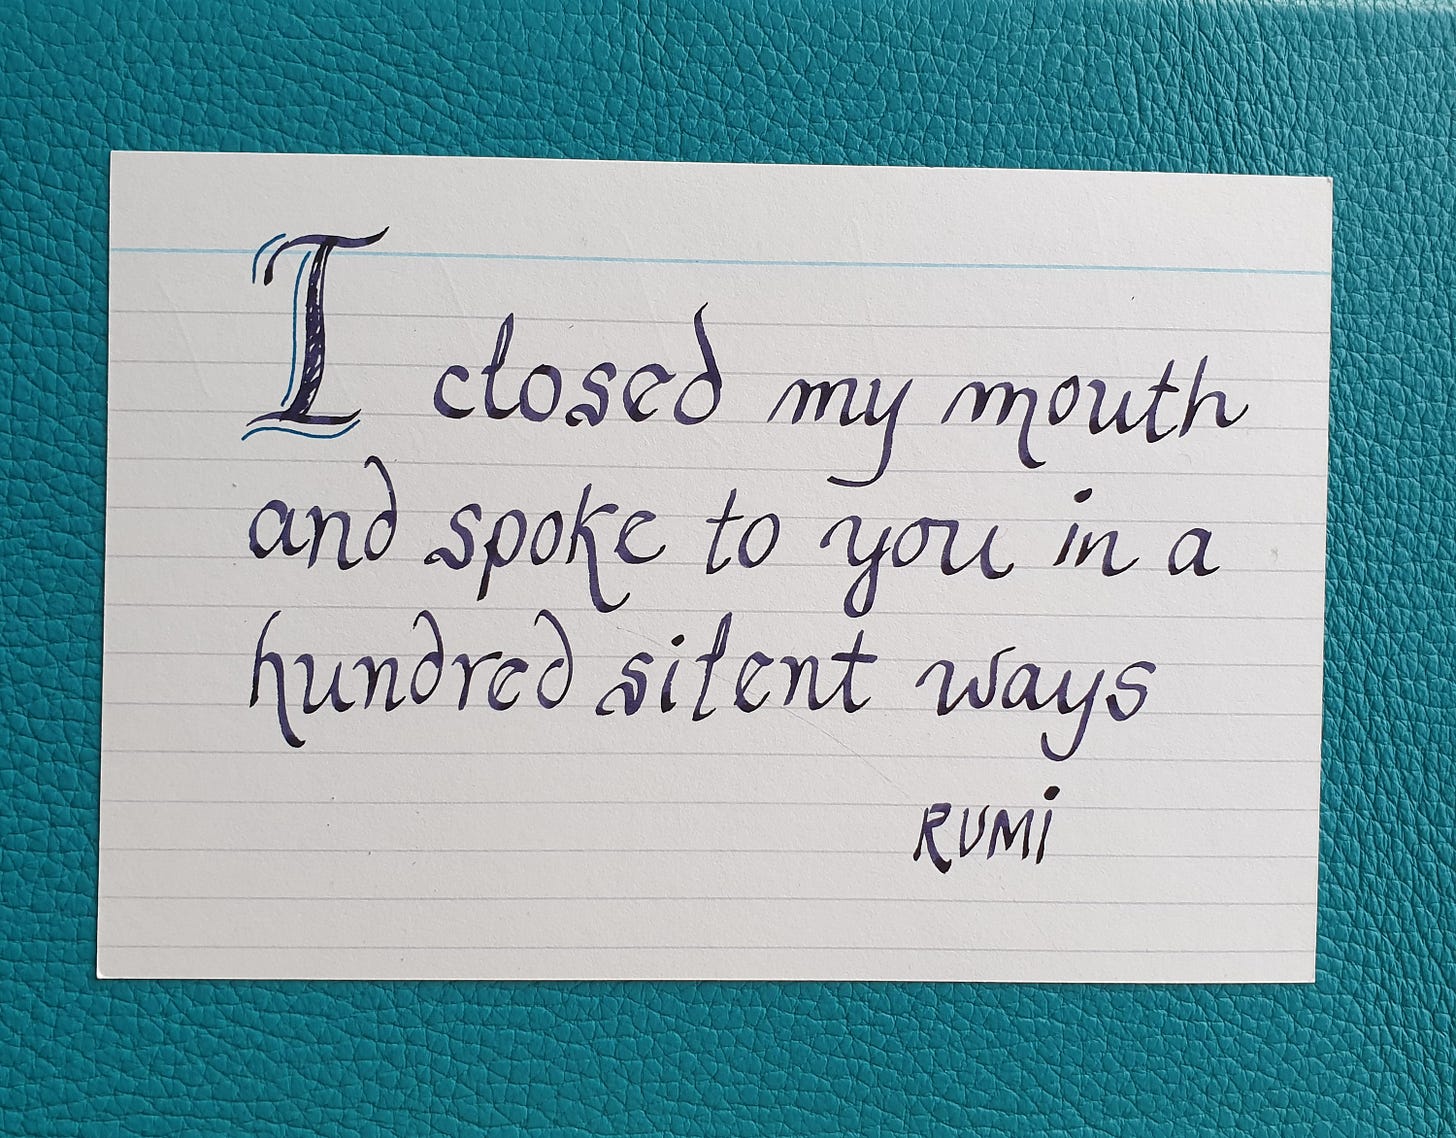 I closed my mouth
and spoke to you in a
hundred silent ways
RUMi